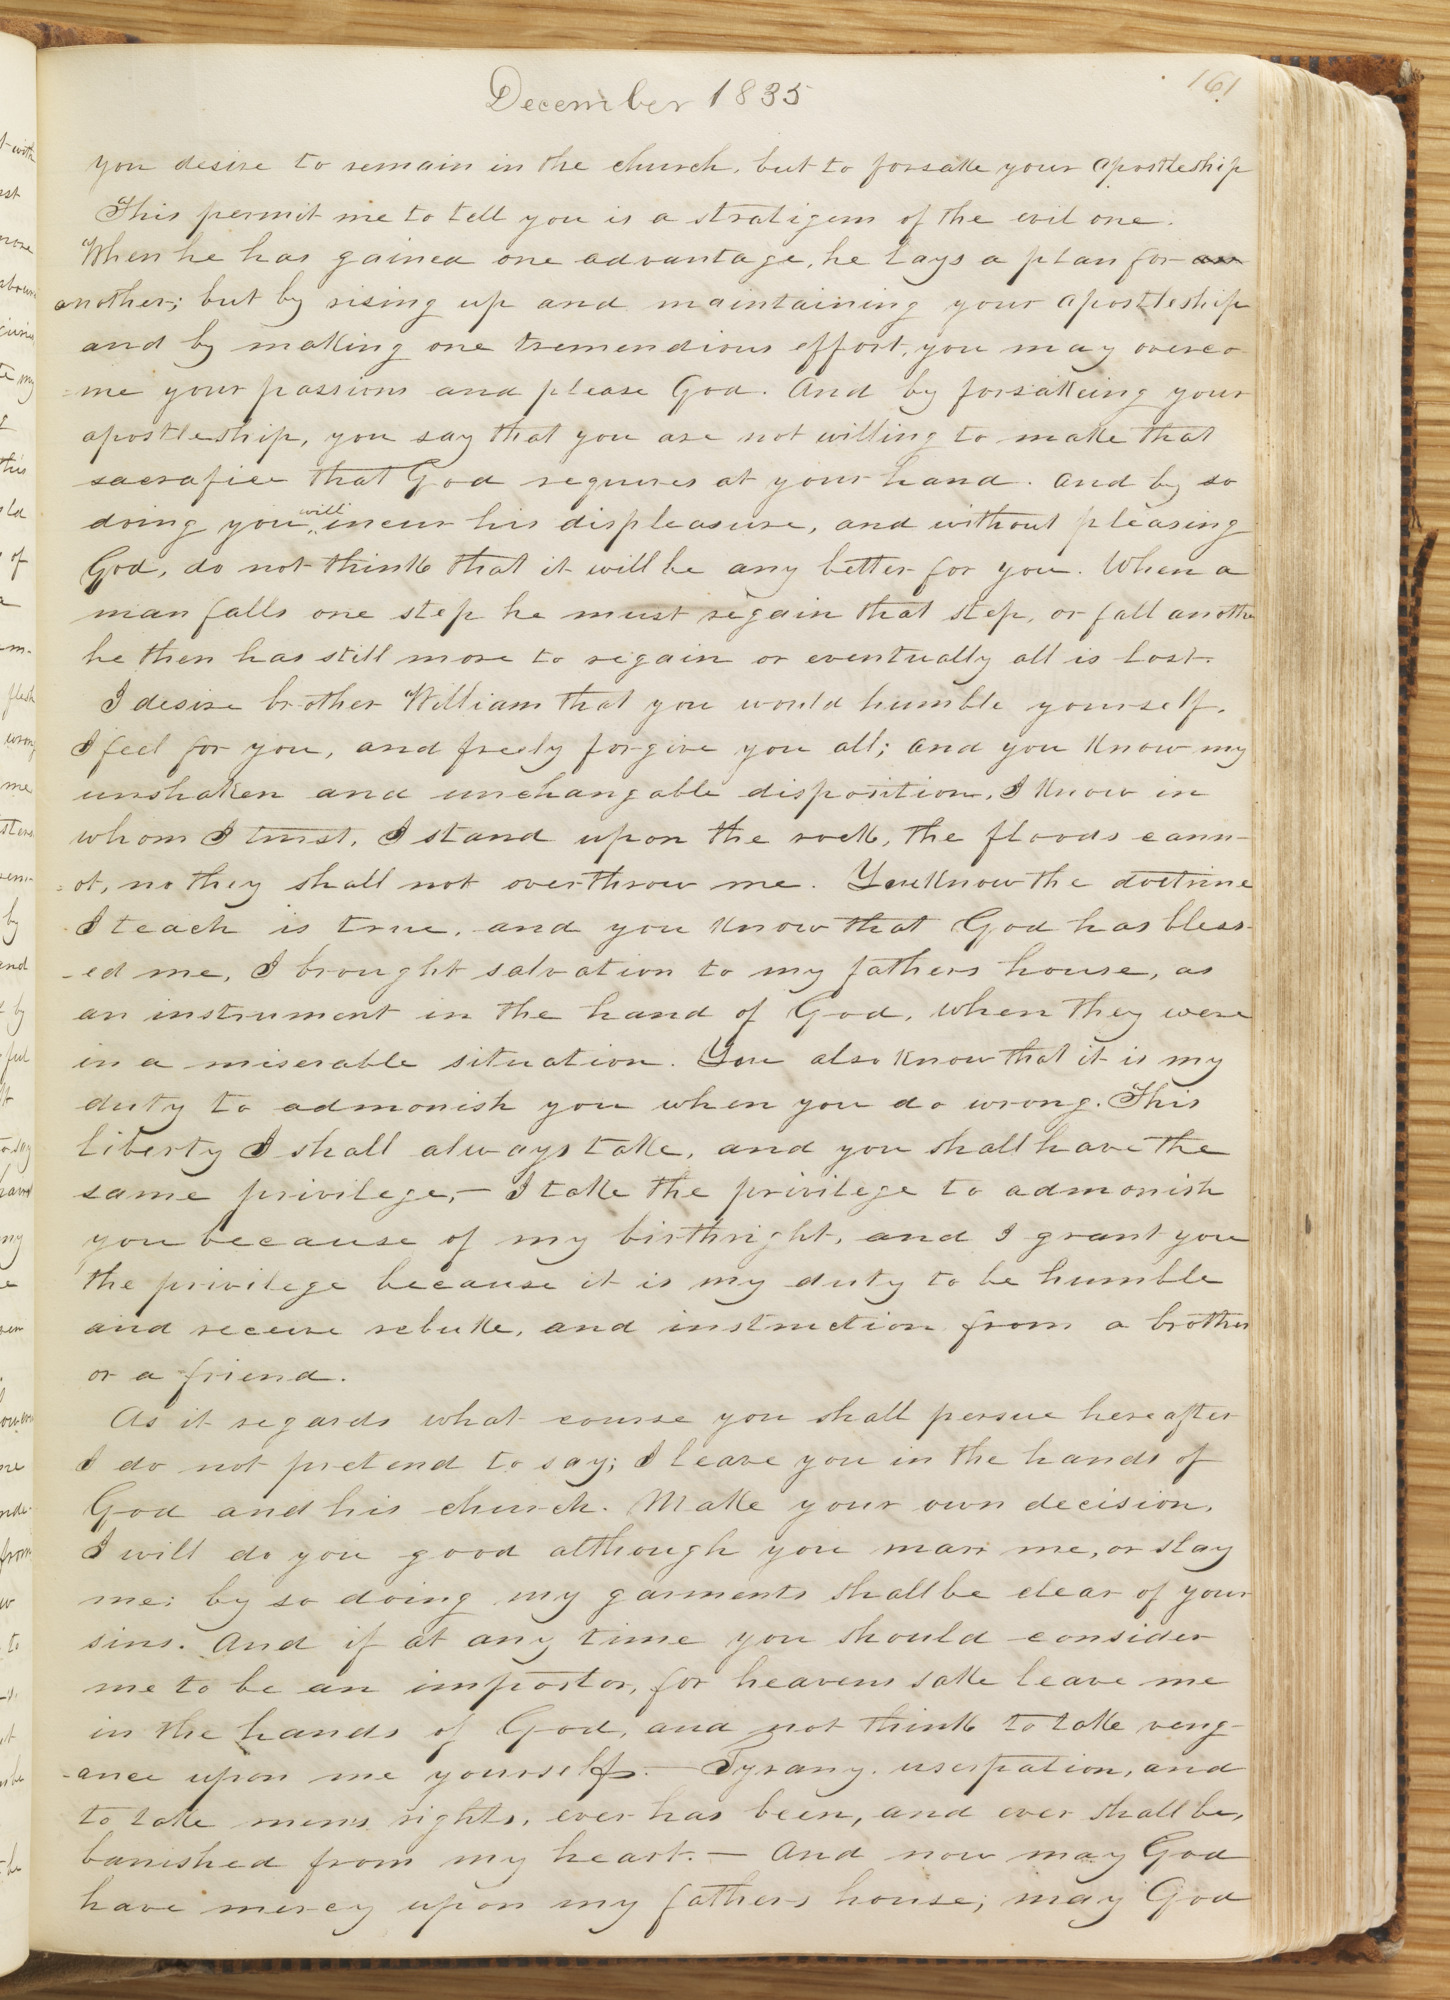 December 1835
161
you desire to remain in the church, but to forsake your apostleship
This permit me to tell you is a stratigem of the evil one.
When he has gained one advantage, he lays a plan for an
another; but by rising up and maintaining your apostleship
and by making one tremendious effort, you may overco-
=me your passions and please God. And by forsakeing your
apostleship, you say that you are not willing to make that
sacrafice that God requires at your hand. and by so
doing you will incur his displeasure, and without pleasing
God, do not think that it will be any better for you. When a
man falls one step he must regain that step, or fall another
he then has still more to regain or eventually all is lost.
I desire brother William that you would humble yourself,
I feel for you, and freely forgive you all; and you know my
unshaken and unchangable disposition, I know in
whom I trust, I stand upon the rock, the floods cann-
=ot, no they shall not overthrow me. You know the doctrine
I teach is true, and you know that God has bless-
-ed me, I brought salvation to my fathers house, as
an instrument in the hand of God, when they were
in a miserable situation. You also know that it is my
duty to admonish you when you do wrong. This
liberty I shall always take, and you shall have the
same privilege,— I take the privilege to admonish
you because of my birthright, and I grant you
the privilege because it is my duty to be humble
and receive rebuke, and instruction from a brother
or a friend.
As it regards what course you shall persue hereafter
I do not pretend to say; I leave you in the hands of
God and his church. Make your own decision,
I will do you good although you marr me, or slay
me; by so doing my garments shall be clear of your
sins. And if at any time you should consider
me to be an impostor, for heavens sake leave me
in the hands of God, and not think to take veng-
-ance upon me yourself.— Tyrany, userpation, and
to take mens rights, ever has been, and ever shall be,
banished from my heart.— And now may God
have mercy upon my fathers house; may God